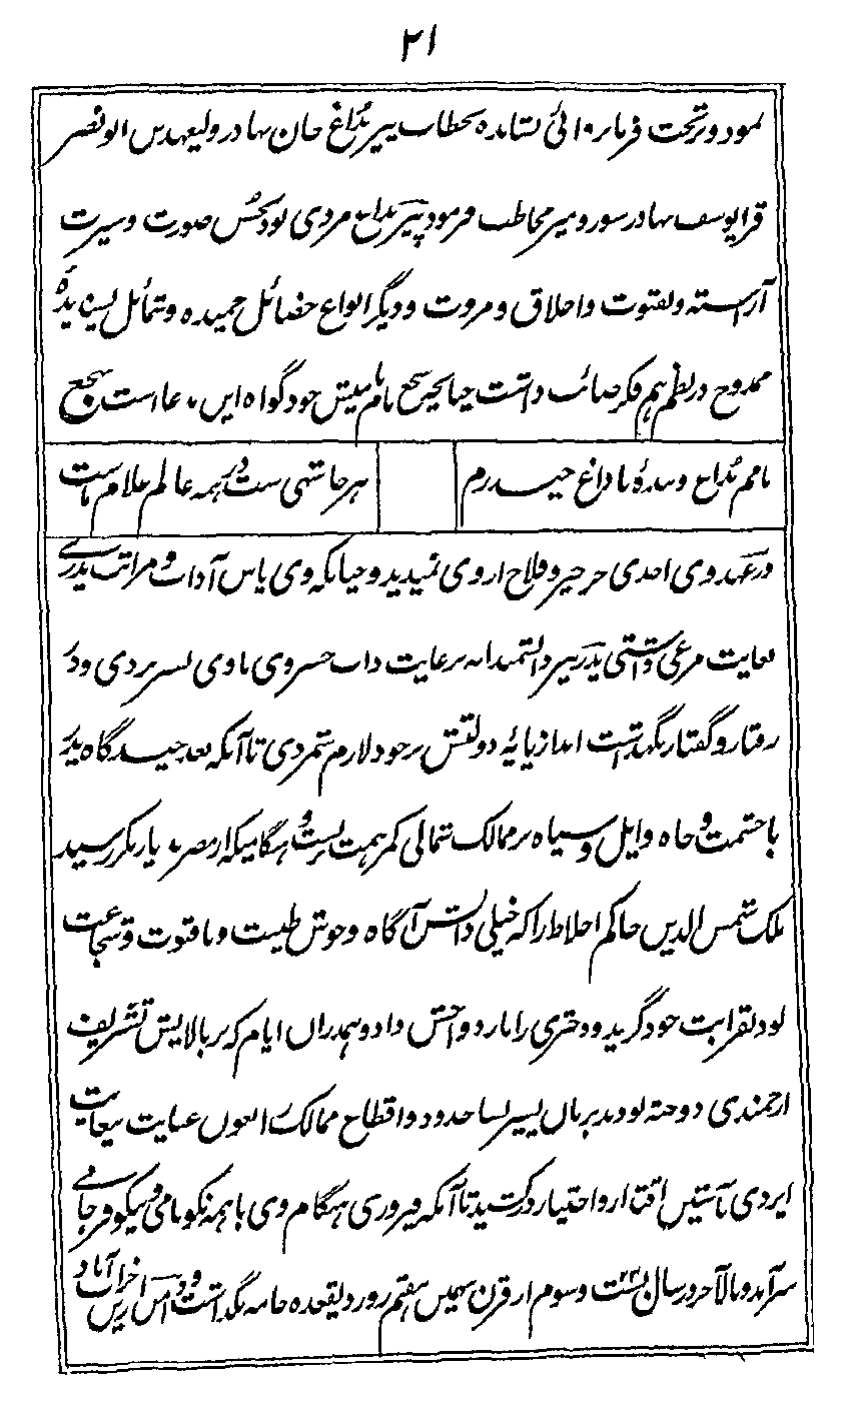 ۲۱
نمود و بر تخت فرمانروائی نشانده بخطاب پیر بُداغ خان بهادر و لیعهدس ابو نصر
قرا یوسف بهادر سور و میر مخاطب فرمود پیر بداغ مردی بود بحُسن صورت و سیرت
آراسته و بفتوت و اخلاق و مروت و دیگر انواع خصائل حمیده و شمائل پسندیدهٔ
ممدوح در نظم هم فکر صائب داشت چنانچه سجع نام نامیش خود گواه این مدعا است سجع
نامم بُداغ و بندهٔ با داغ حیدرم
هر جا شهی ست در همه عالم غلام ماست
در عهد وی احدی جز خیر و فلاح از وی ندید و چنانکه وی پاس آداب و مراتب پدری
بغایت مرعی داشتی پدر نیز دانشمندانه رعایت داب خسروی با وی بسر بردی و در
رفتار و گفتار نگهداشت انداز پایهٔ دولتش بر خود لازم شمردی تا آنکه بعد چند گاه پدر
با حشمت و جاه و ایل و سپاه بر ممالک شمالی کمر همت بربست و هنگامیکه از مصر به دیار بکر رسید
ملک شمس الدین حاکم اخلاط را که خیلی دانش آگاه و خوش طینت و با فتوت و شجاعت
بود بقرابت خود گزید و دختری را بازدواجش داد و همدران ایام که بر بالایش تشریف
ارجمندی دوخته بود بدبر مان پسر بسا حدود و اقطاع ممالک را بعون عنایت بیغایت
ایزدی بآستین اقتدار و اختیار در کشید تا آنکه فیروزی هنگام وی با همه نکو نامی و نیکو فرجامی
سر آمد و بالآخر در سال بست و سوم از قرن نهمین هفتم روز ذیقعده جامه بگذاشت و دامن ازین خراب آباد